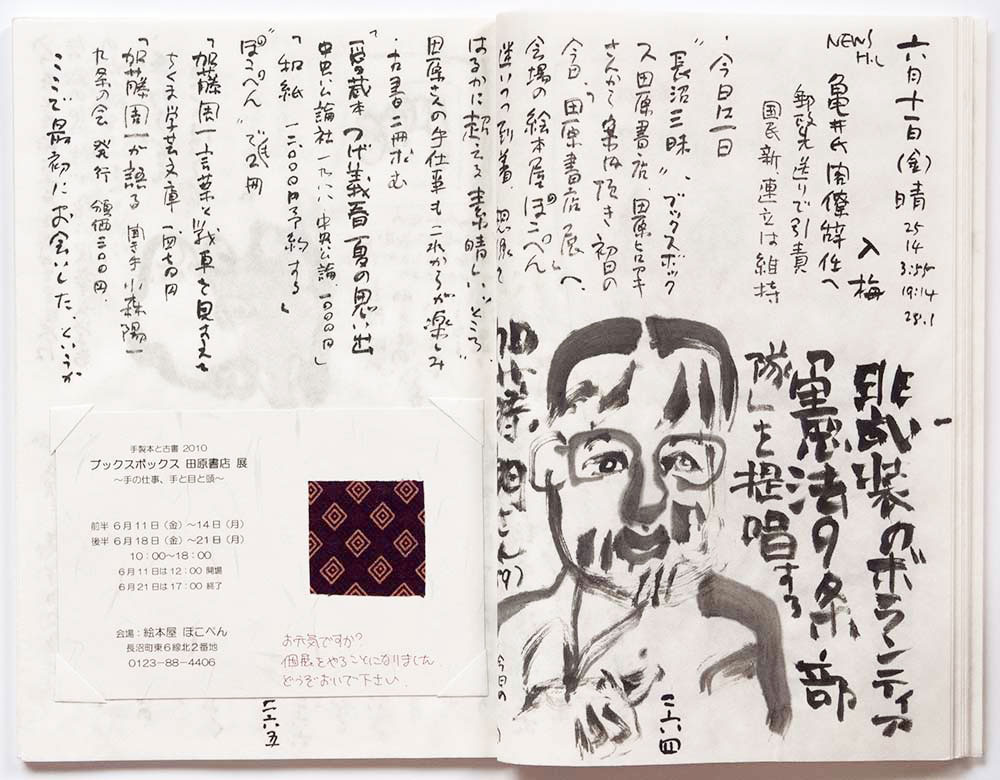 六月十一日(金)晴
25
14
3:55
19:14
28.1
入梅
NEWS
H.L
亀井氏閣僚辞任へ
郵政先送りで引責
国民新、連立は維持
・今日は一日
“長沼三昧”。ブックスボック
ス田原書店、田原
さんから案内頂き初日の
今日、「田原書店展」へ
会場の絵本屋ぽこぺん
迷いつつ到着、
はるかに超えてる素晴しいところ。
田原さんの手仕事もこれからが楽しみ
・古書二冊求む
つげ義春 夏の思い出
中央公論社
「和紙 予約する」
“ぽこぺん”で2冊
「加藤周一 言葉と戦車を見すえて
ちくま学芸文庫
「加藤周一が語る 聞き手 小森陽一
九条の会 発行 頒価三〇〇円、
ここで最初にお会いした、というか
非武装のボランティア
「憲法9条部
隊」を提唱する
加藤
二六四
二六五
手製本と古書 2010
ブックスボックス 田原書店 展
〜手の仕事、手と目と頭〜
前半 6月11日(金)〜14日(月)
後半 6月18日(金)〜21日(月)
10:00〜18:00
6月11日は12:00 開場
6月21日は17:00 終了
会場:絵本屋 ぽこぺん
長沼町東6線北2番地
0123-88-4406
お元気ですか?
個展をやることになりました
どうぞおいで下さい.